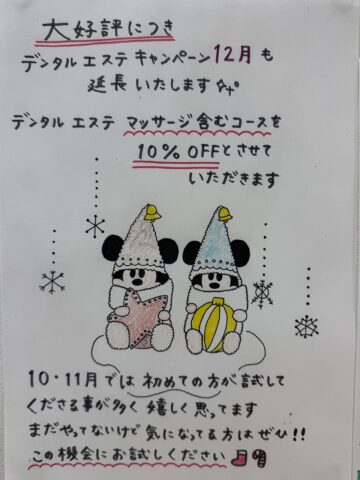 大好評につき
デンタルエステキャンペーン12月も
延長いたします
デンタルエステ マッサージ含むコースを
10%OFFとさせて
いただきます
10・11月では初めての方が試して
くださる事が多く嬉しく思ってます
まだやってないけど気になってる方はぜひ!!
この機会にお試しください